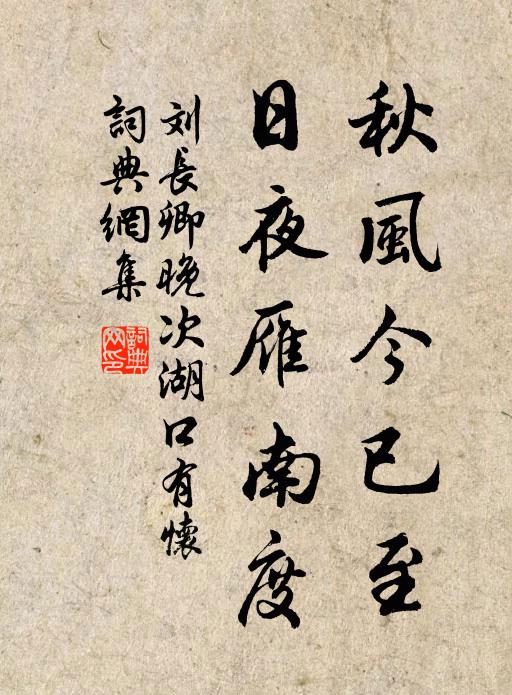 秋風今已至
日夜雁南度
刘長卿晚次湖口有懷
詞典網集
詞典网印